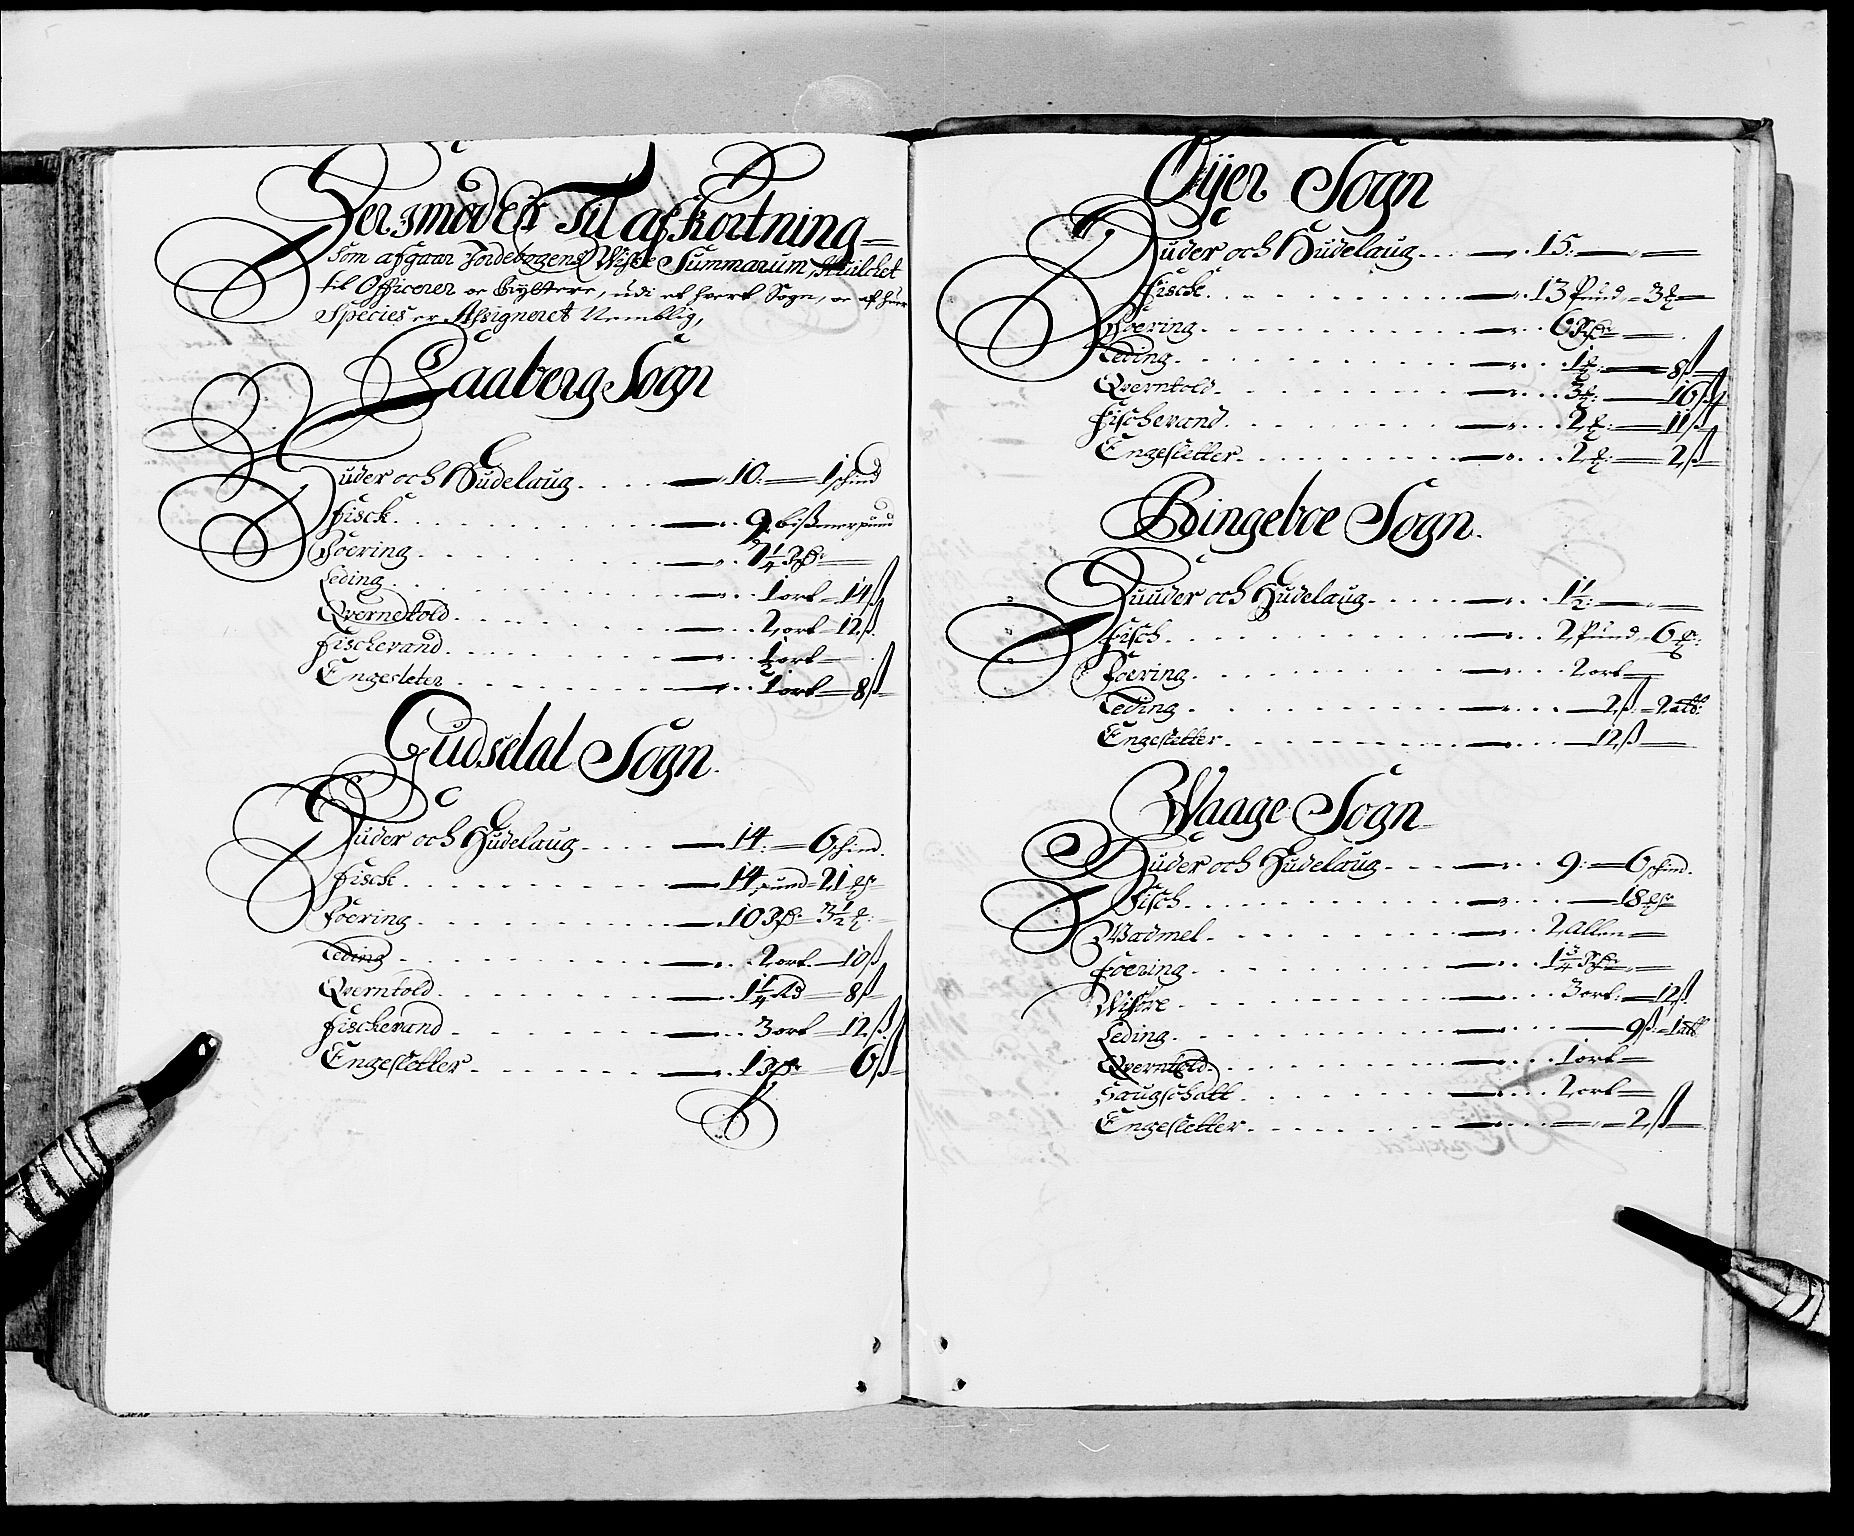 Dersmoed Er Til afkortning
Som afgaar Jordebogens Wisse Summarum, Huilchet
til Officerer oc Ryttere, udi et hvert Sogn, oc af huer
Species er Assigneret Nemblig,
Faaberg Sogn
Huder och Hudelaug 10: 1 schind
Fisck 9 bismerpund
Foering
Leding 1 ort 14 ß
Qverntold 2 ort 12 ß
Fischevand 1/2 ort
Engesleter 1 ort 8 ß
Gudsdal Sogn.
Huder och Hudelaug 14: 6 schind.
Fisck 14 pund 21
Foering
Leding 2 ort 10 ß
Qverntold 8 ß
Fischevand 3 ort 12 ß
Engesletter 6 ß
Øijer Sogn
Huder och Hudelaug 15:
Fisck 13 Pund 3
Foering 6
Leding 1 8 ß
Qverntold 3 16 ß
Fischevand 2 11 ß
Engesletter 2 2 ß
Ringeboe Sogn.
Huuder och Hudelaug 1 1/2:
Fisch 2 Pund 6
Foering 2 ort
Leding 2 ß
Engesletter 12 ß
Waage Sogn
Huder och Hudelaug 9: 6 schind.
Fisch 18
Wadmel 2 Allen
Foering
Wissøre 3 ort: 12 ß
Leding 9 ß
Qverntold 1 ort
Haugschatt 2 ort
Engesletter 2 ß